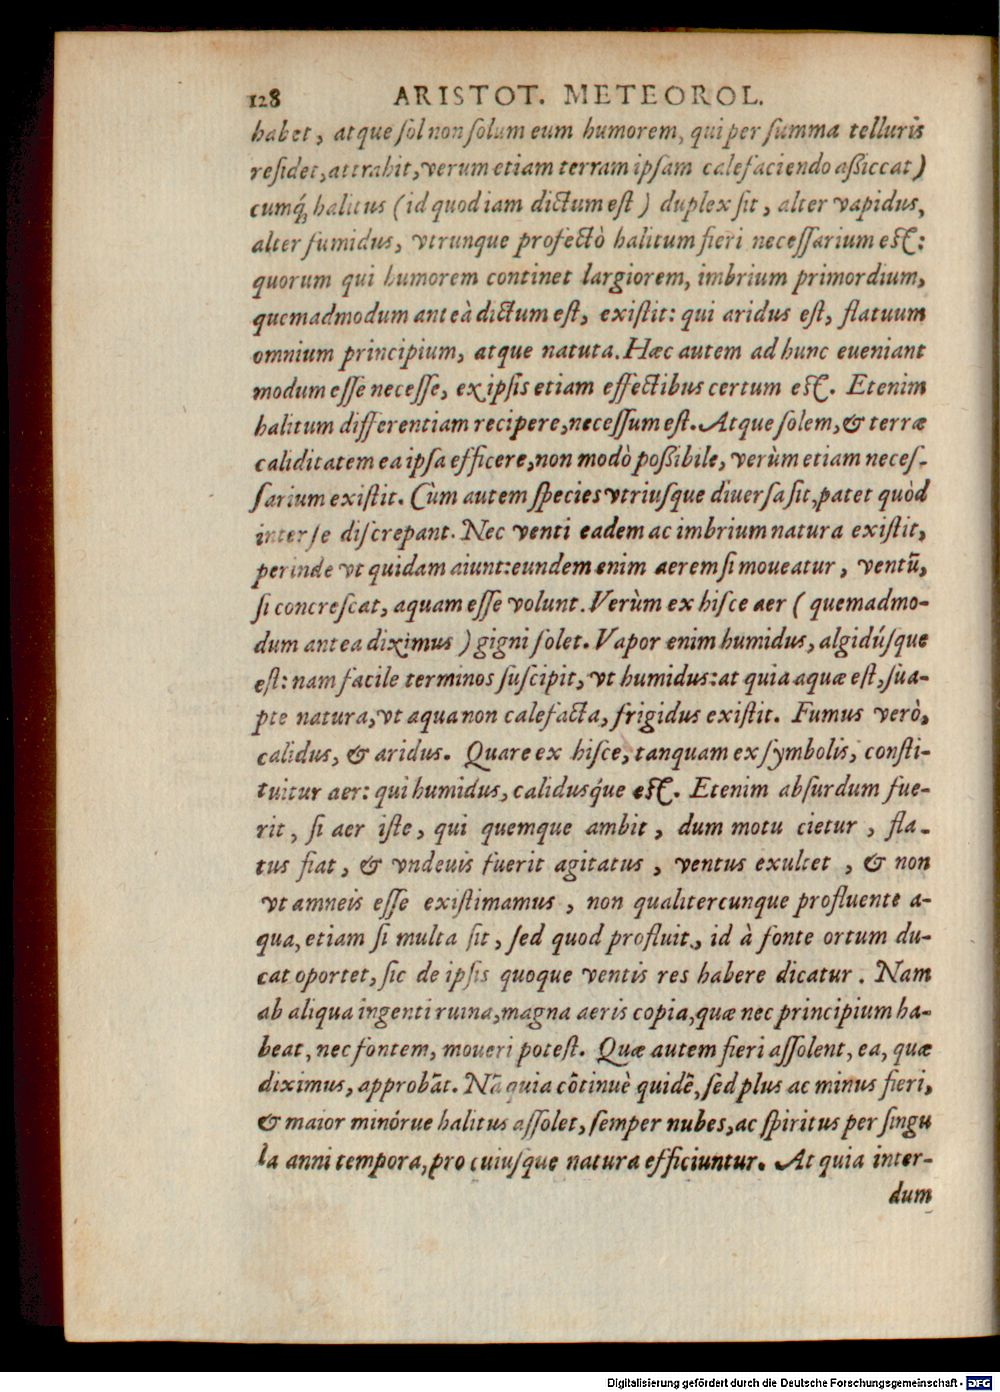 128 ARISTOT. METEOROL.
habet, atque ſol non ſolum eum humorem, qui per ſumma telluris
reſidet, attrahit, verum etiam terram ipſam calefaciendo aßiccat)
cumq́; halitus (id quod iam dictum eſt) duplex ſit, alter vapidus,
alter fumidus, vtrunque profectò halitum fieri neceſſarium eſt:
quorum qui humorem continet largiorem, imbrium primordium,
quemadmodum anteà dictum eſt, exiſtit: qui aridus eſt, flatuum
omnium principium, atque natuta. Hæc autem ad hunc eueniant
modum eſſe neceſſe, ex ipſis etiam effectibus certum eſt. Etenim
halitum differentiam recipere, neceſſum eſt. Atque ſolem, & terræ
caliditatem ea ipſa efficere, non modò poßibile, verùm etiam neceſ-
ſarium exiſtit. Cùm autem ſpecies vtriuſque diuerſa ſit, patet quòd
inter ſe diſcrepant. Nec venti eadem ac imbrium natura exiſtit,
perinde vt quidam aiunt: eundem enim aerem ſi moueatur, ventū,
ſi concreſcat, aquam eſſe volunt. Verùm ex hiſce aer (quemadmo-
dum antea diximus) gigni ſolet. Vapor enim humidus, algidúſque
eſt: nam facile terminos ſuſcipit, vt humidus: at quia aquæ eſt, ſua-
pte natura, vt aqua non calefacta, frigidus exiſtit. Fumus verò,
calidus, & aridus. Quare ex hiſce, tanquam ex ſymbolis, conſti-
tuitur aer: qui humidus, calidusq́ue eſt. Etenim abſurdum fue-
rit, ſi aer iſte, qui quemque ambit, dum motu cietur, fla-
tus fiat, & vndeuis fuerit agitatus, ventus exultet, & non
vt amneis eſſe exiſtimamus, non qualitercunque profluente a-
qua, etiam ſi multa ſit, ſed quod profluit, id à fonte ortum du-
cat oportet, ſic de ipſis quoque ventis res habere dicatur. Nam
ab aliqua ingenti ruina, magna aeris copia, quæ nec principium ha-
beat, nec fontem, moueri poteſt. Quæ autem fieri aſſolent, ea, quæ
diximus, approbāt. Nā quia cōtinuè quidē, ſed plus ac minus fieri,
& maior minórue halitus aſſolet, ſemper nubes, ac ſpiritus per ſingu
la anni tempora, pro cuiuſque natura efficiuntur. At quia inter-
dum
Digitalisierung gefördert durch die Deutsche Forschungsgemeinschaft - DFG